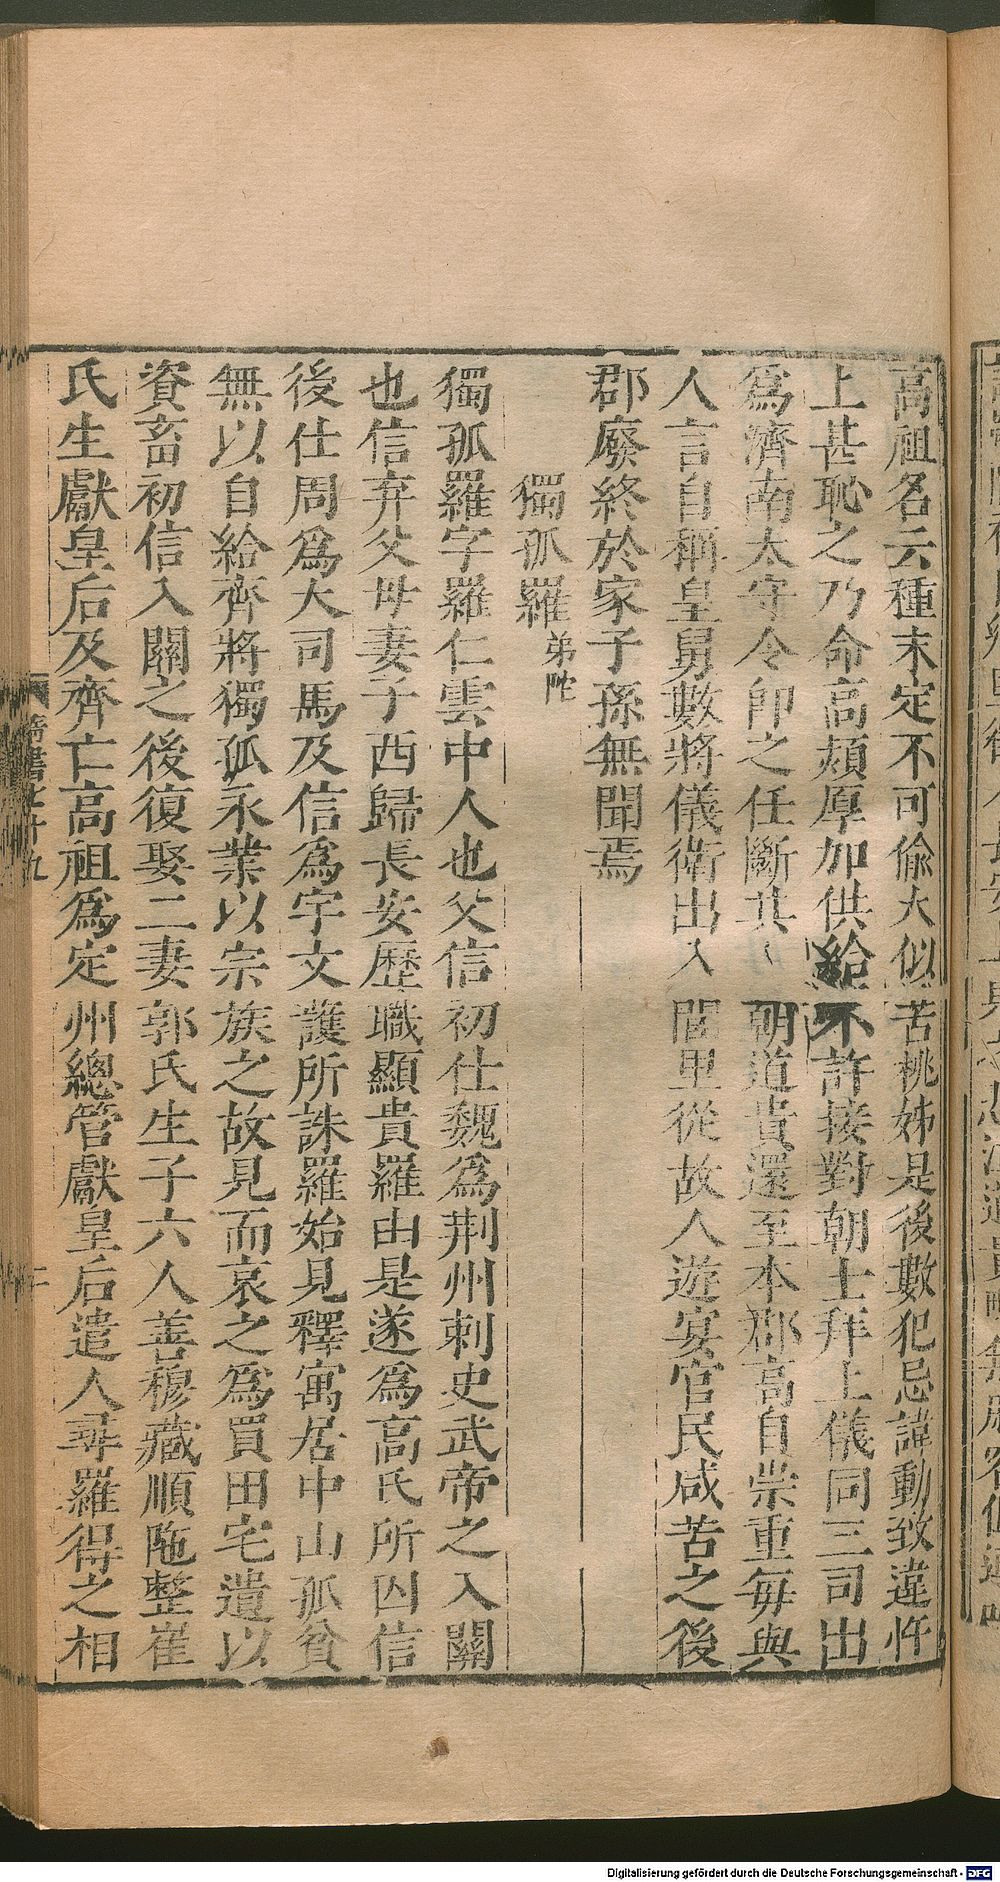 高祖名云種末定不可偷大似苦桃姊是後數犯忌諱動致違忤
上甚恥之乃命高熲厚加供給不許接對朝士拜上儀同三司出
為濟南太守令即之任斷其入朝道貴還至本郡高自崇重每與
人言自稱皇舅數將儀衛出入閭里從故人遊宴官民咸苦之後
郡廢終於家子孫無聞焉
獨孤羅弟陁
獨孤羅字羅仁雲中人也父信初仕魏為荆州刺史武帝之入關
也信弃父母妻子西歸長安歷職顯貴羅由是遂為高氏所囚信
後仕周為大司馬及信為宇文護所誅羅始見釋寓居中山孤貧
無以自給齊將獨孤永業以宗族之故見而哀之為買田宅遺以
資畜初信入關之後復娶二妻郭氏生子六人善穆藏順陁整崔
氏生獻皇后及齊亡高祖為定州總管獻皇后遣人尋羅得之相
隋書七十九
二
Digitalisierung gefördert durch die Deutsche Forschungsgemeinschaft - DFG